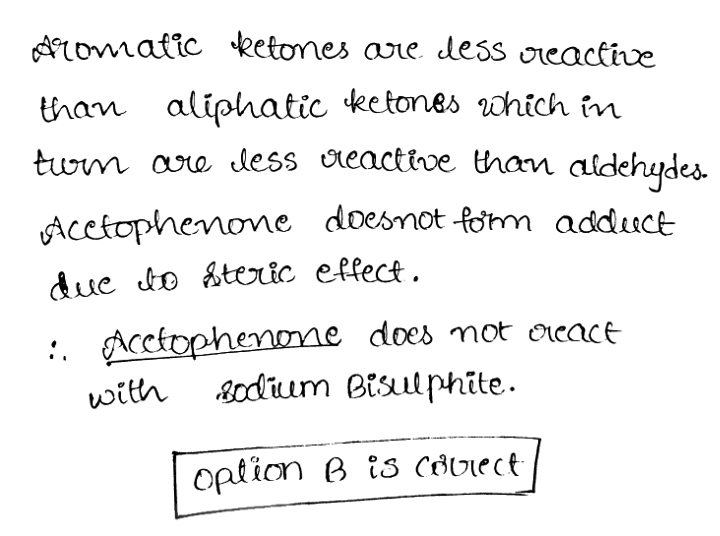 Aromatic ketones are less reactive
than aliphatic ketones which in
turn are less reactive than aldehydes.
Acetophenone doesnot form adduct
due to steric effect.
∴ Acetophenone does not react
with sodium Bisulphite.
option B is correct